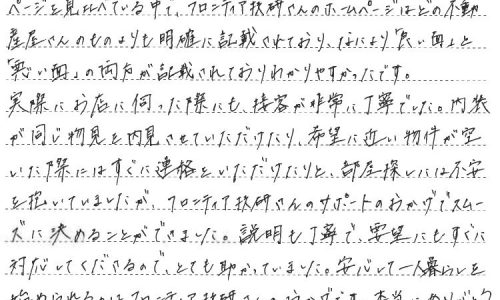 ページを見比べている中で、フロンティア技研さんのホームページはどの不動
産屋さんのものよりも明確に記載されており、なにより「良い面」と
「悪い面」の両方が記載されておりわかりやすかったです。
実際にお店に伺った際にも、接客が非常に丁寧でした。内装
が同じ物見を内見させていただけたり、希望に近い物件が空
いた際にはすぐに連絡をいただけたりと、部屋探しには不安
を抱いていましたが、フロンティア技研さんのサポートのおかげでスムー
ズに決めることができました。説明も丁寧で、要望にもすぐに
対応してくださるので、とても助かっていました。安心して一人暮らしを
始められるのはフロンティア技研さんのおかげです。本当にありがとう